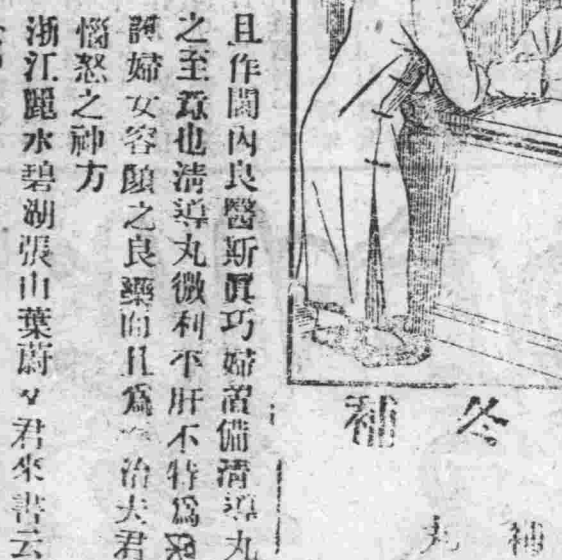 冬補
補丸
且作閨內良醫斯眞巧婦當備淸導丸
之至意也淸導丸微利平肝不特爲
婦女容顏之良藥而且爲治夫君
惱怒之神方
浙江麗水碧湖張山葉蔚々君來書云